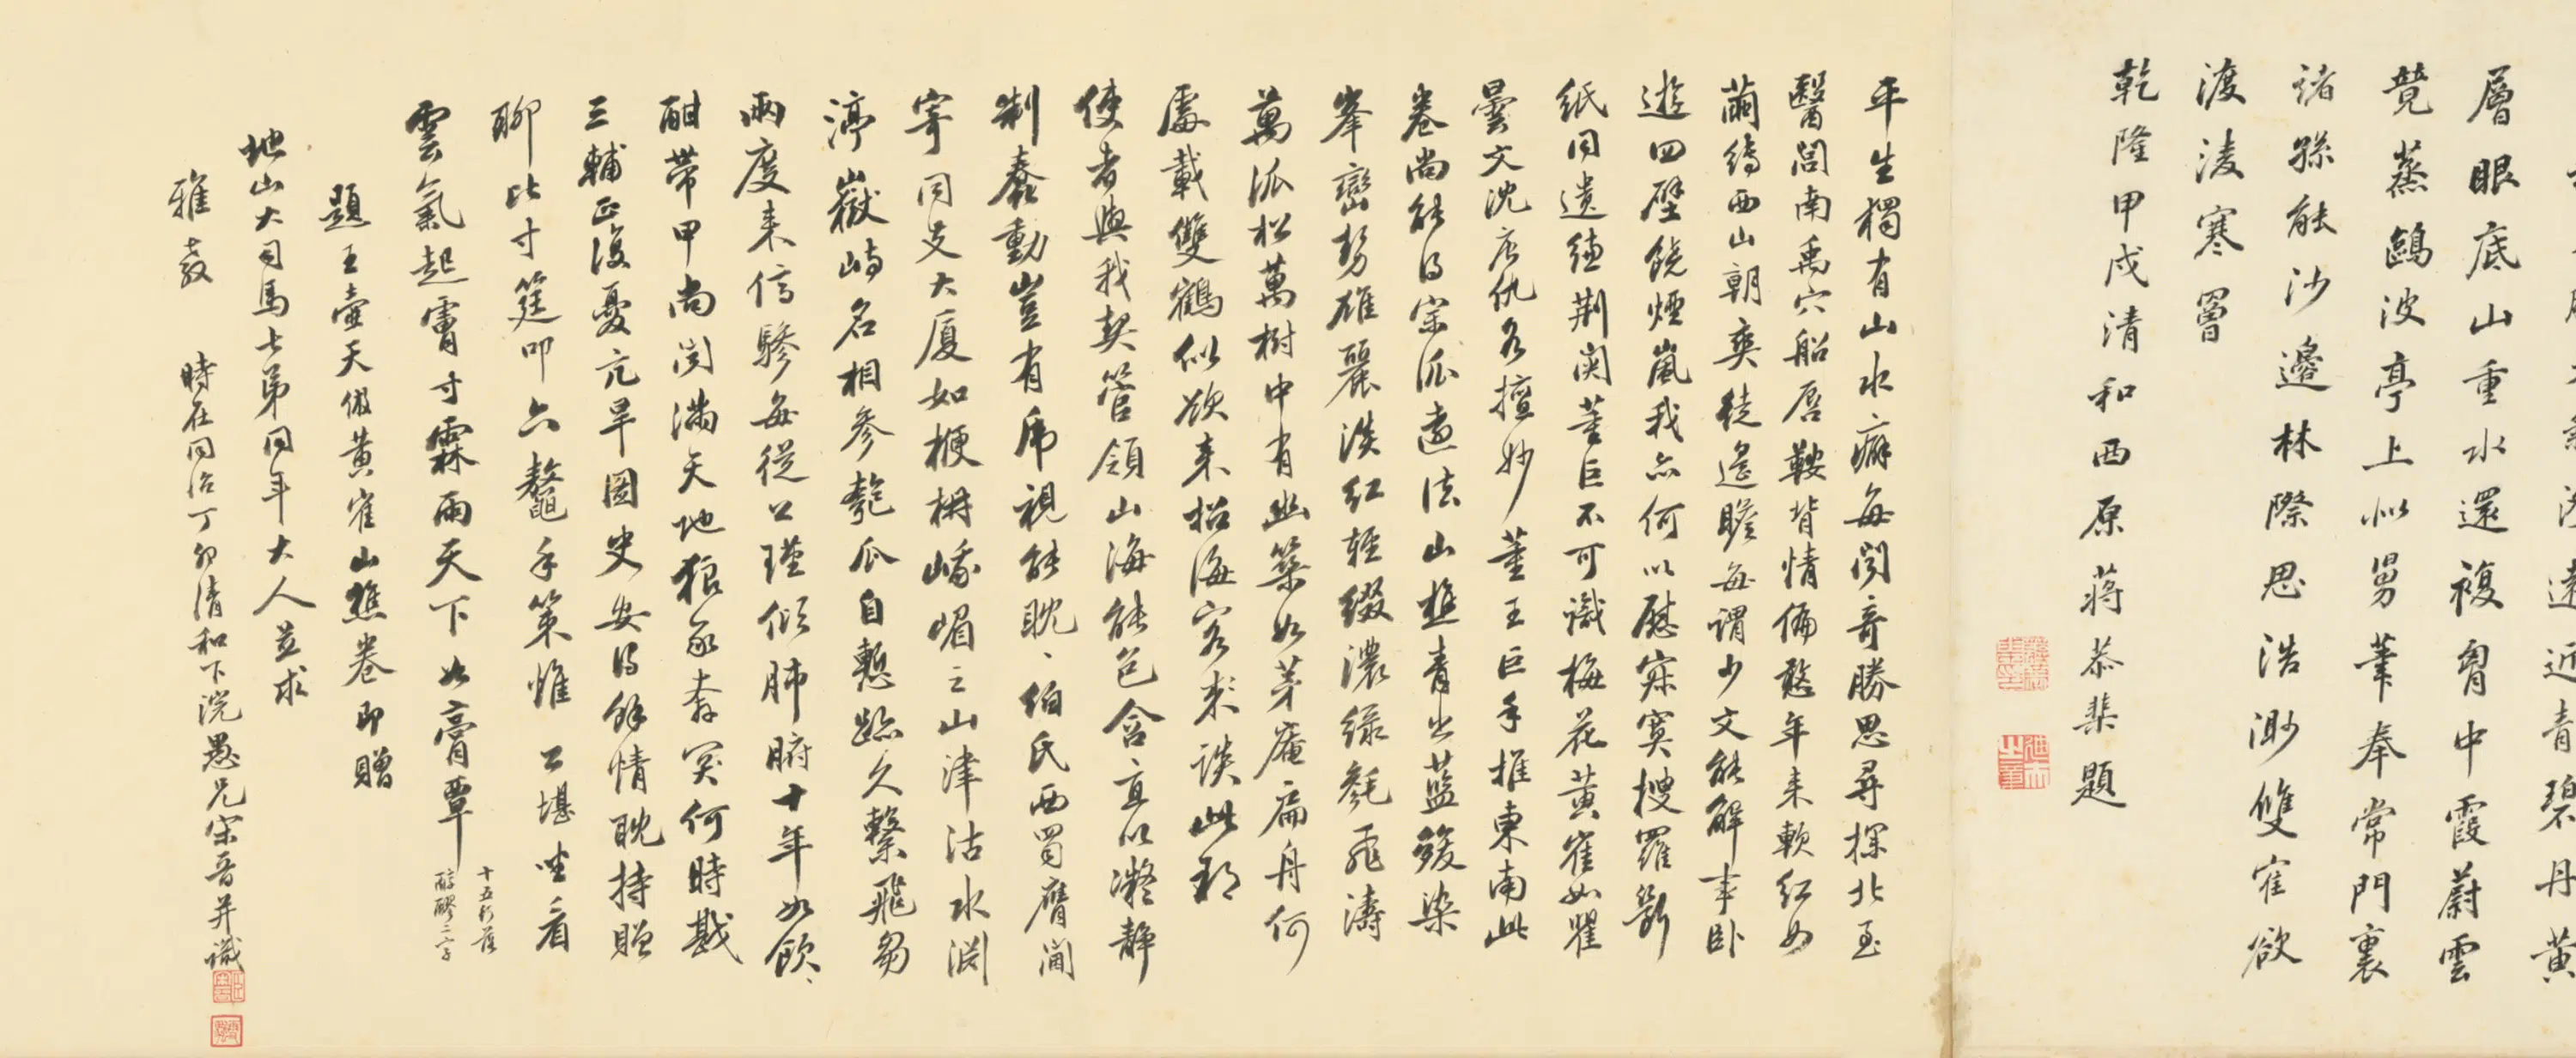 層眼底山重水還複胷中霞蔚雲
蒸鷗波亭上似舅筆奉常門裏
諸孫能沙邊林際思浩渺雙寉欲
渡淩寒罾
乾隆甲戌清和西原蔣恭棐題
平生獨有山水癖每聞奇勝思尋探北至
醫閭南禹穴船唇鞍背情偏憨年來軟紅如
繭縛西山朝爽徒遙瞻每謂少文能解事臥
遊四壁饒煙嵐我亦何以慰寂寞搜羅斷
紙同遺縑荆關董巨不可識梅花黃寉如瞿
曇文沈唐仇各擅妙董王巨手推東南此
卷尚能得宗派遠法山樵青出藍皴染
峯巒勢雄麗淡紅輕綴濃綠毿飛濤
萬派松萬樹中有幽築如茅庵扁舟何
處載雙鶴似欲來招海客來談此郡
使者與我契管領山海能包含直以凝靜
制蠢動豈有虎視能眈、伯氏西蜀膺閫
寄同支大廈如楩枏峨嵋之山津沽水淵
渟嶽峙名相參匏瓜自慙跡久繫飛芻
兩度來停驂每從公瑾傾肺腑十年如飲、
酣帶甲尚聞滿天地狼豕奔突何時戡
三輔正復憂亢旱圖史安得餘情耽持贈
聊比寸筳叩六鼇手策惟公堪坐看
雲氣起膚寸霖雨天下如膏覃
十五行落
醇醪二字
題王壺天倣黃寉山樵卷即贈
地山大司馬七弟同年大人並求
雅教
時在同治丁卯清和下浣愚兄宋晉并識